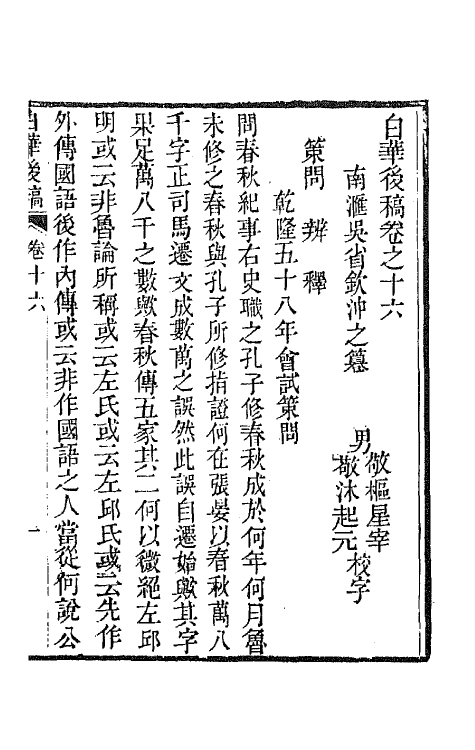 白華後稿卷之十六
南滙吳省欽沖之篹
男敬樞星宰
敬沐起元
校字
策問 辨 釋
乾隆五十八年會試策問
問春秋紀事右史職之孔子修春秋成於何年何月魯
未修之春秋與孔子所修指證何在張晏以春秋萬八
千字正司馬遷文成數萬之誤然此誤自遷始歟其字
果足萬八千之數歟春秋傳五家其二何以微絕左邱
明或云非魯論所稱或云左氏或云左邱氏或云先作
外傳國語後作內傳或云非作國語之人當從何說公
白華後稿 卷十六 一